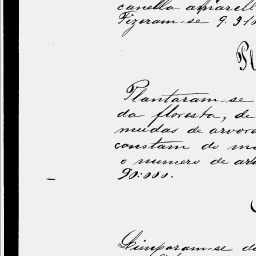 canella amarell
Fizeram-se 9.31
Pl
Plantaram-se
da floresta, de
mudas de arvore
constam do ma
o numero de arv
90:000.
Limparam-se de